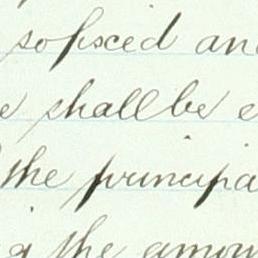 so fixed an
e shall be e
the principa
g the amoun